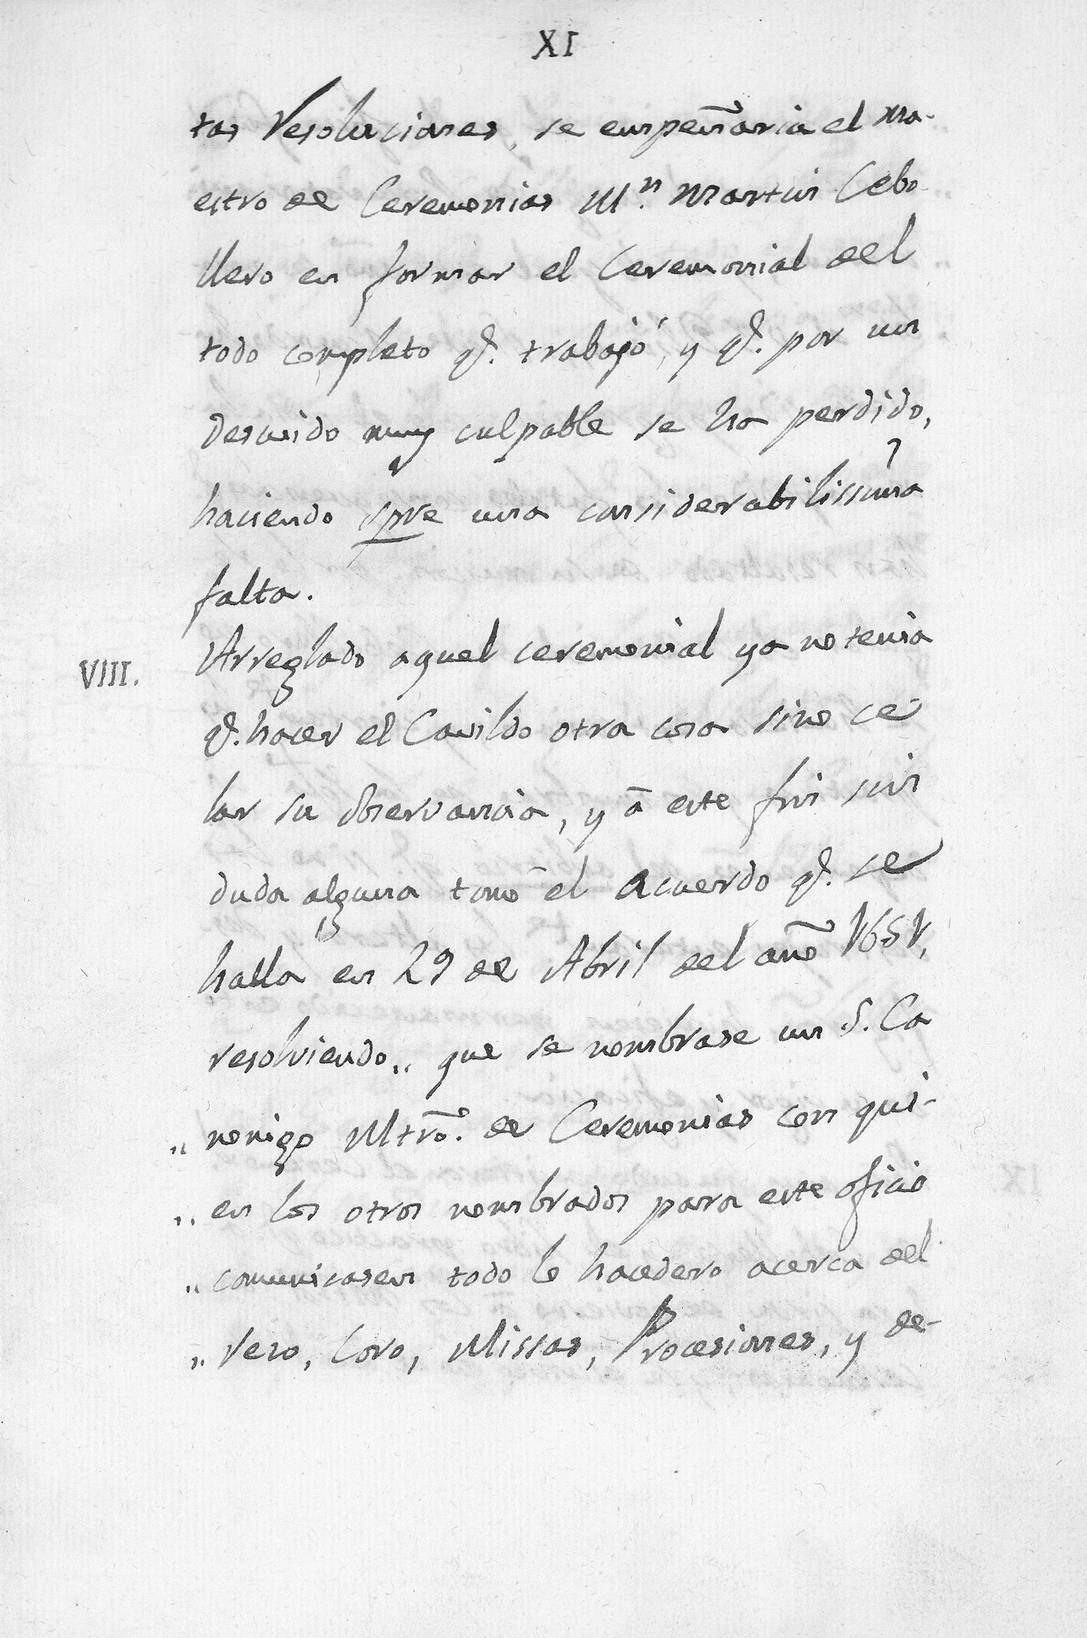 XI
tas Resoluciones, se empeñaria el Ma-
estro de Ceremonias Mn. Martin Cebo
llero en formar el Ceremonial del
todo completo q.e trabajó, y q.e por un
descuido muy culpable se ha perdido,
haciendo spre una considerabilissima
falta.
VIII. Arreglado aquel ceremonial ya no tenia
q.e hacer el Cavildo otra cosa sino ce
lar su observancia, y á este fin sin
duda alguna tomó el acuerdo q.e se
halla en 29 de Abril del año 1651,
resolviendo „ que se nombrase un S. Ca
„ nonigo Mtro. de Ceremonias con qui-
„ en los otros nombrados para este oficio
„ comunicasen todo lo hacedero acerca del
„ rezo, Coro, Missas, Procesiones, y de-